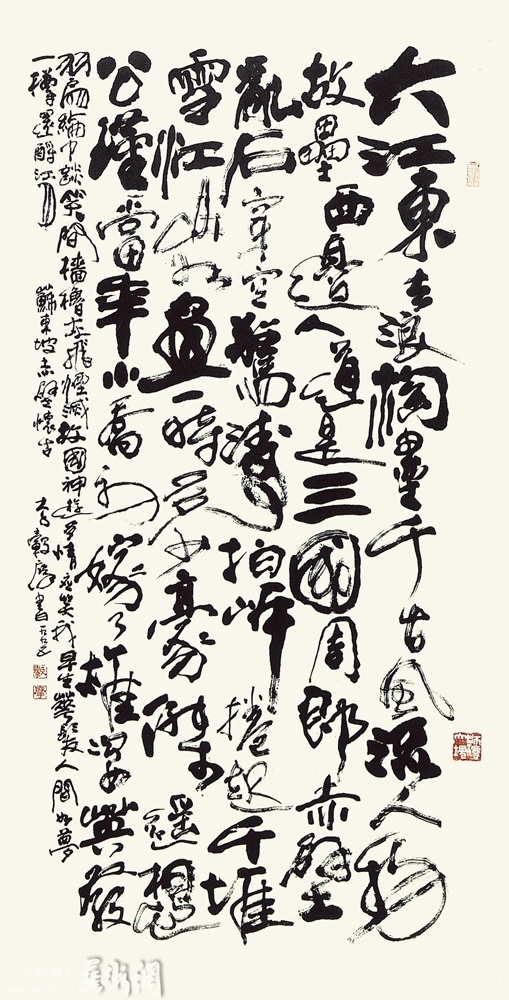 大江東去浪淘盡千古風流人物
故壘西邊人道是三國周郎赤壁
亂石穿空驚濤拍岸捲起千堆
雪江山如畫一時多少豪傑遙想
公瑾當年小喬初嫁了雄姿英發
羽扇綸巾談笑間檣櫓灰飛煙滅故國神遊多情應笑我早生華髮人間如夢
一樽還酹江月 蘇東坡赤壁懷古 書